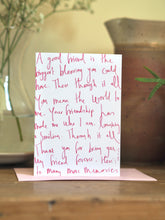 A good friend is the
biggest blessing you could
have. Through it all
You mean the World to
me. Your friendship has
made me who I am. Laughing
& Smiling. Through it all
Thank you for being you.
My friend forever. Here's
to Many More Memories